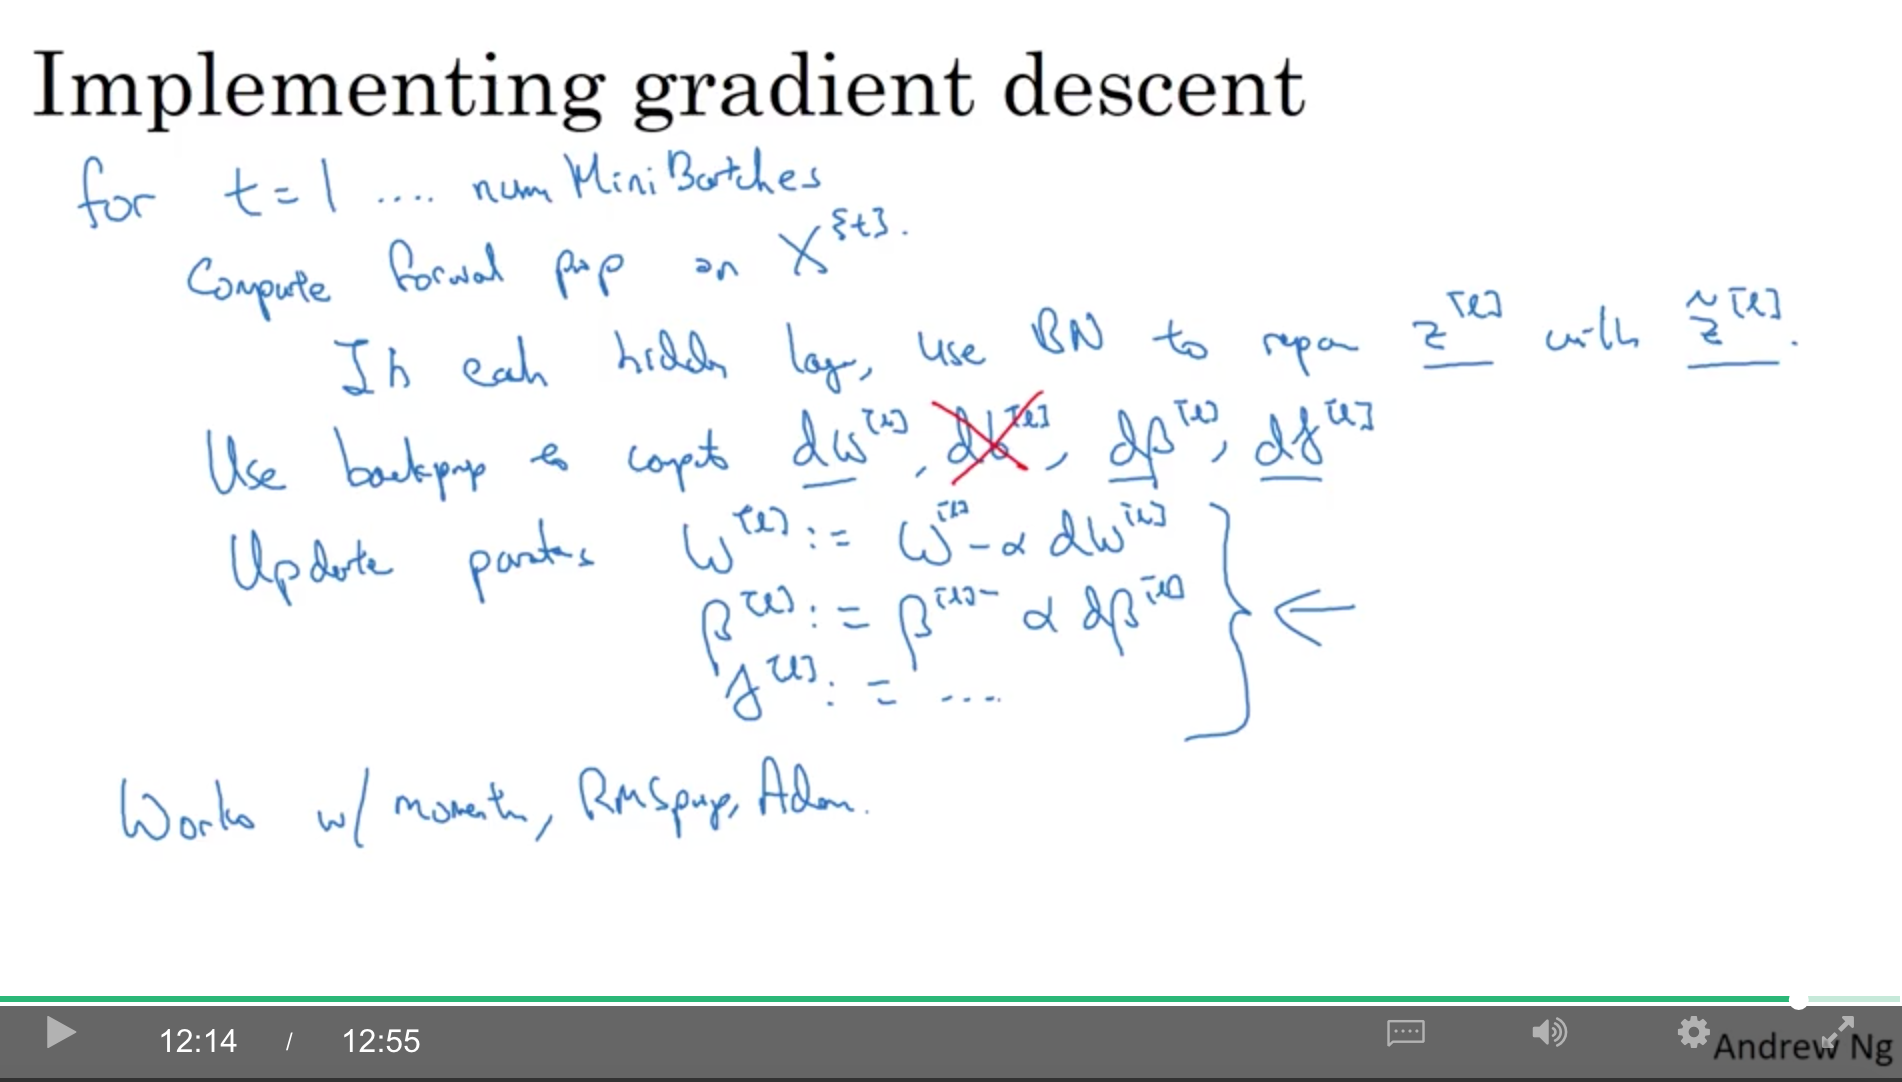 Implementing gradient descent
for t=1 .... num MiniBatches
Compute forward prop on X^{t}.
In each hidden layer, use BN to replace z^[l] with z̃^[l].
Use backprop to compute dw^[l], db^[l], dβ^[l], dγ^[l]
Update parameters w^[l] := w^[l] - α dw^[l]
β^[l] := β^[l] - α dβ^[l]
γ^[l] := ....
Works w/ momentum, RMSprop, Adam.
12:14 / 12:55
Andrew Ng